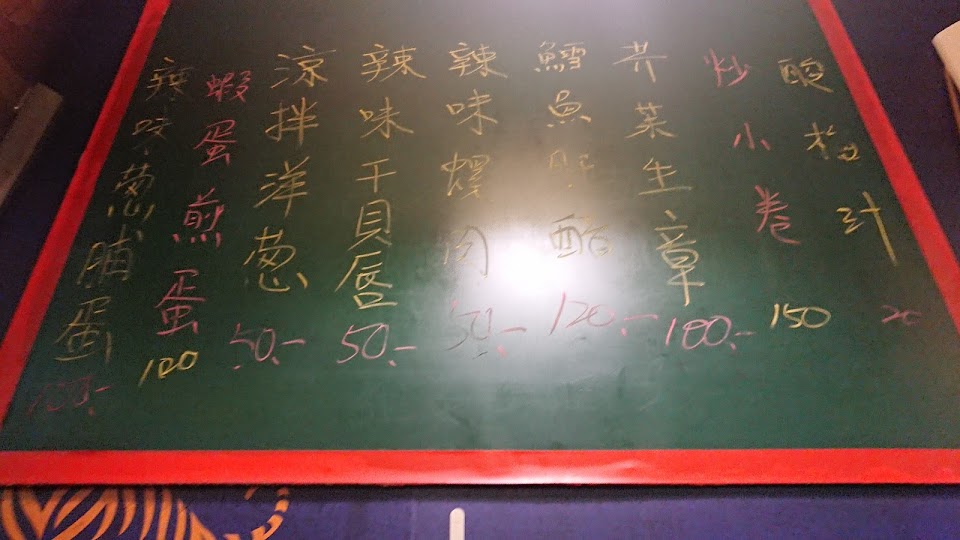 酸梅汁 20
炒小卷 150
芥茉生章 100.-
鱈魚肝 120.-
辣味 肉 50.-
辣味干貝唇 50.-
涼拌洋蔥 50.-
蝦蛋煎蛋 100
辣味蔥脯蛋 100.-